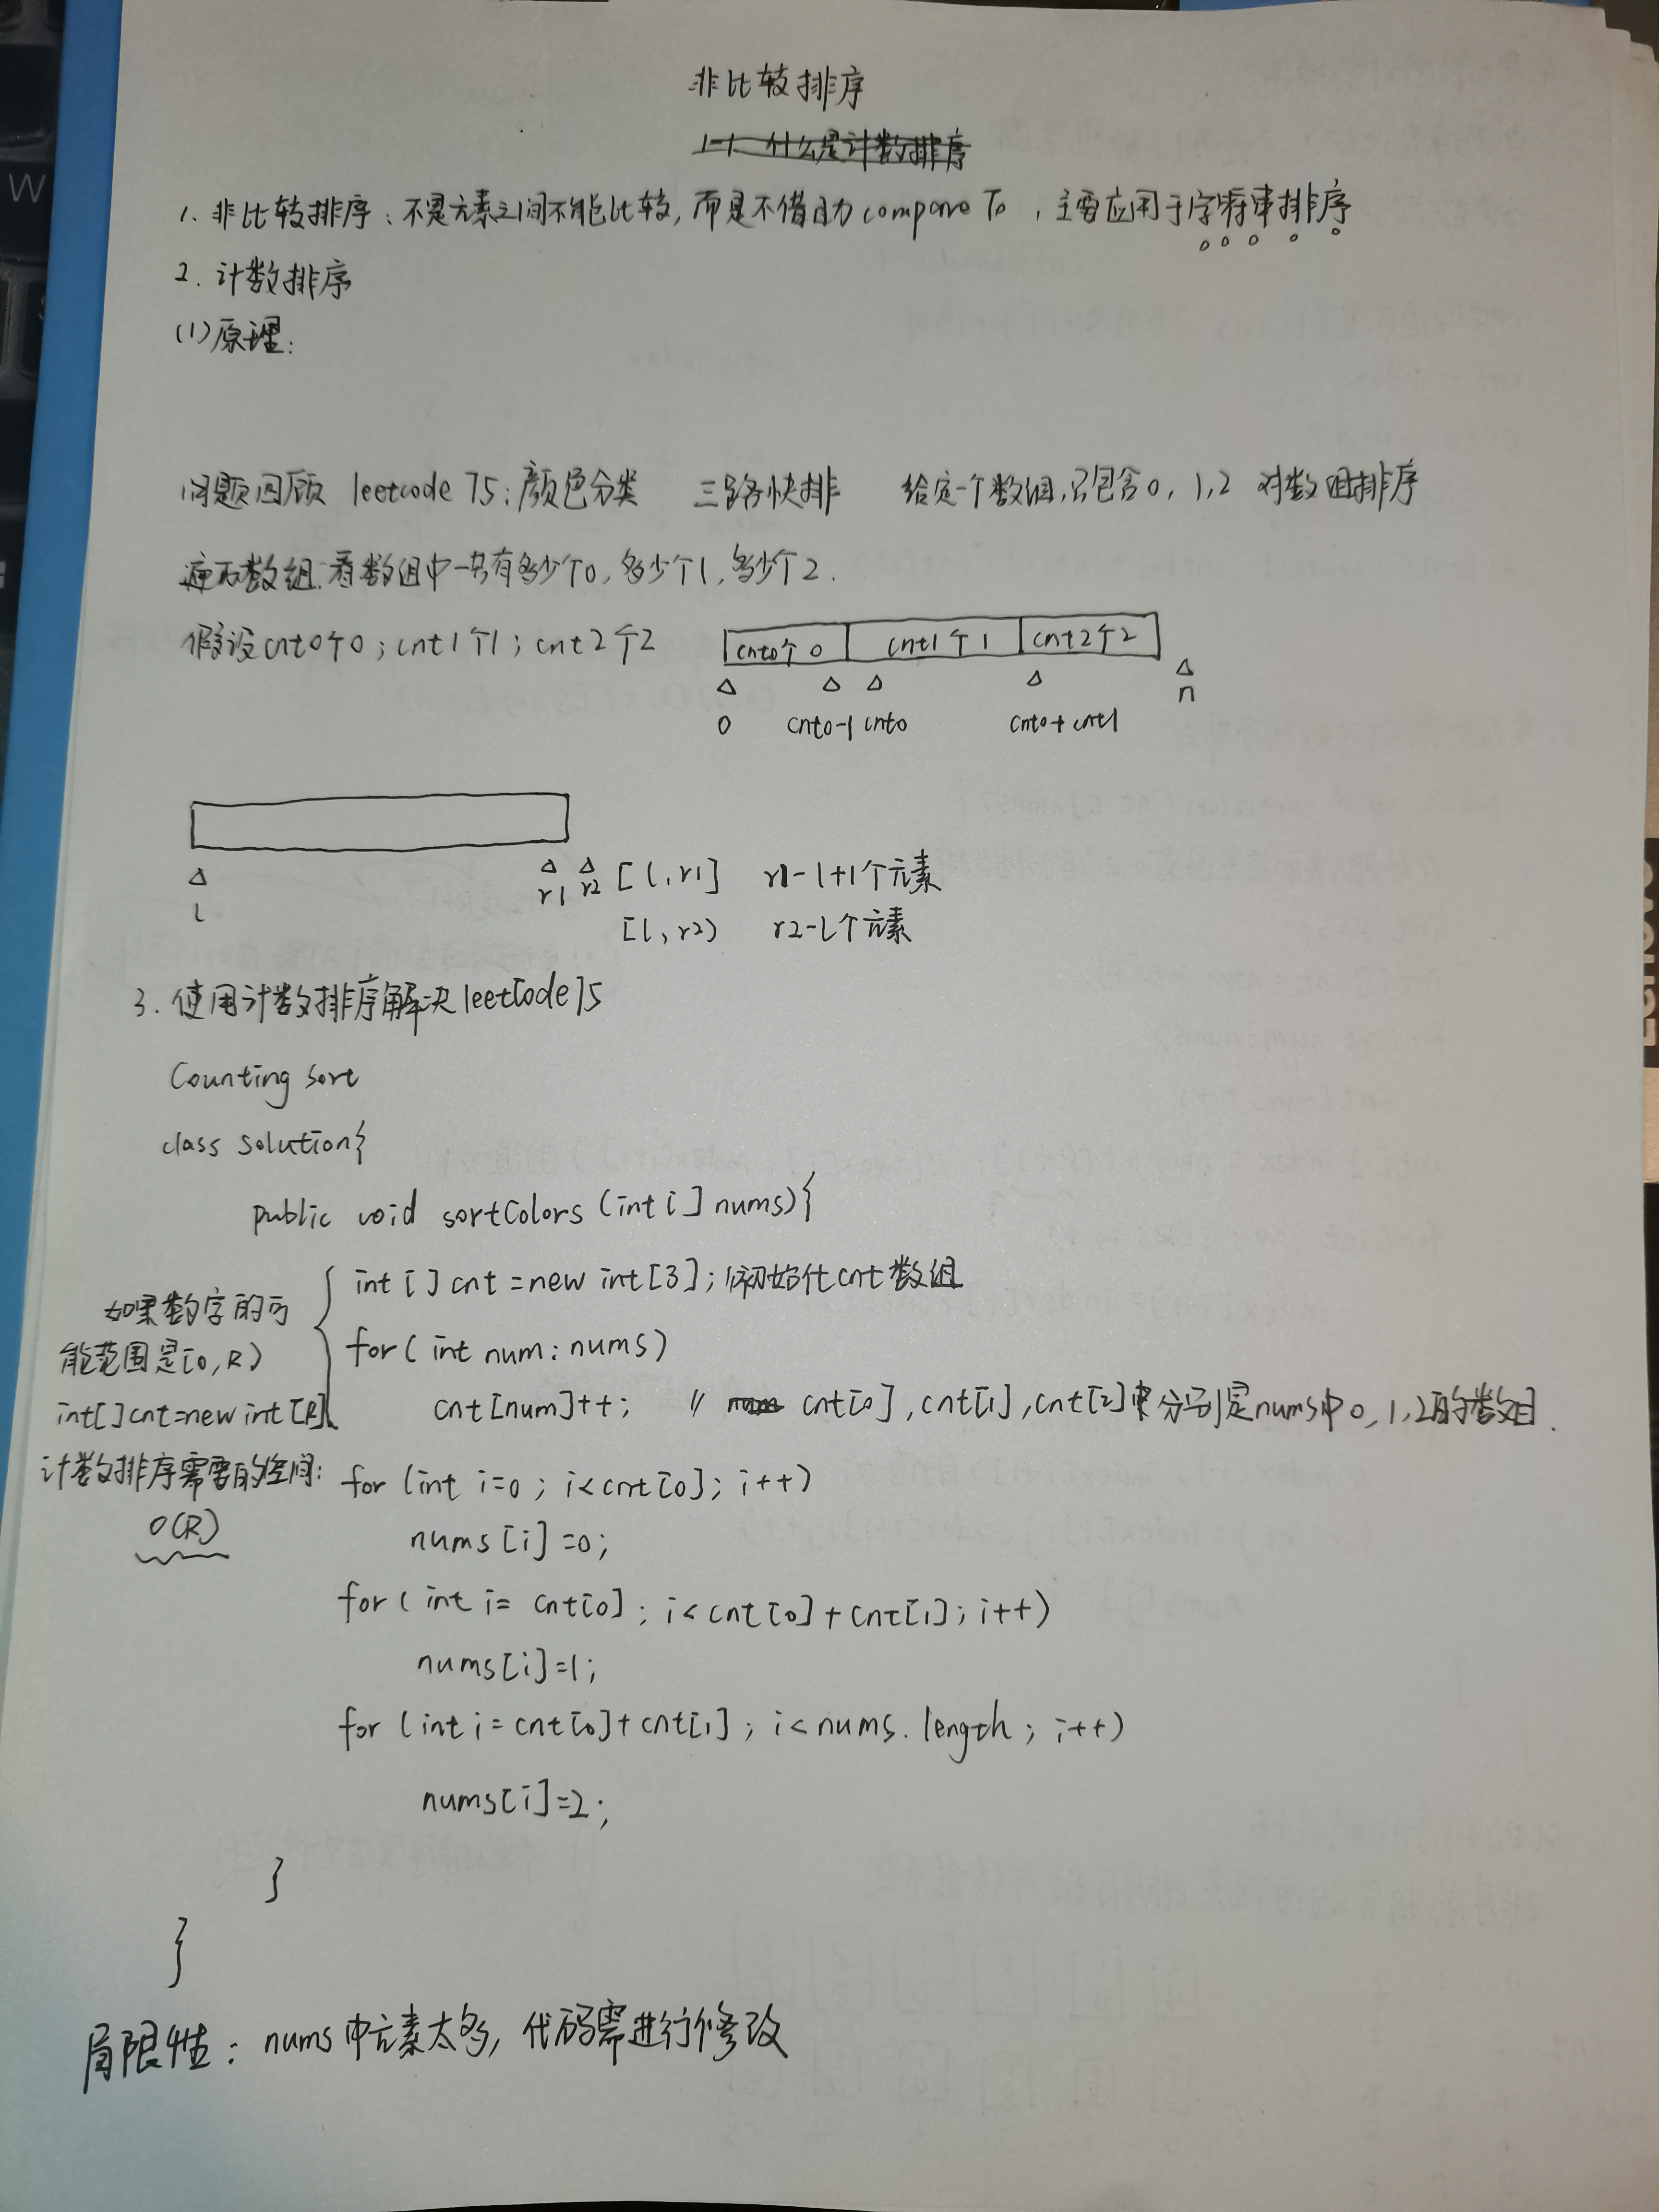 非比较排序
1-1 什么是计数排序
1. 非比较排序：不是元素之间不能比较，而是不借助compare To，主要应用于字符串排序
2. 计数排序
(1)原理：
问题回顾 leetcode 75：颜色分类 三路快排 给定一个数组，只包含0，1，2 对数组排序
遍历数组.看数组中一共有多少个0，多少个1，多少个2.
假设cnt0个0；cnt1个1；cnt2个2
cnt0个0 cnt1个1 cnt2个2
0 cnt0-1 cnt0 cnt0+cnt1 n
l r1 r2 [l,r1] r1-l+1个元素
[l,r2) r2-l个元素
3. 使用计数排序解决leetCode75
Counting sort
class solution{
public void sortColors (int[] nums){
int [] cnt = new int[3]; //初始化cnt数组
for( int num : nums)
cnt[num]++; // cnt[0], cnt[1], cnt[2]中分别是nums中0,1,2的数目.
如果数字的可
能范围是[0,R)
int[]cnt=new int[R]
计数排序需要的空间：
O(R)
for (int i=0; i<cnt[0]; i++)
nums[i]=0;
for( int i= cnt[0]; i<cnt[0]+cnt[1]; i++)
nums[i]=1;
for (int i=cnt[0]+cnt[1]; i<nums.length; i++)
nums[i]=2;
}
}
局限性：nums中元素太多，代码需进行修改
lenovo
W